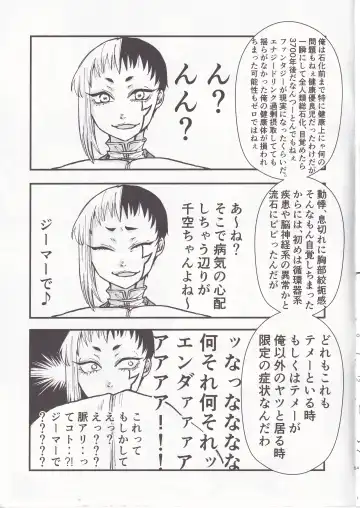 俺は石化前まで特に健康上にゃ何の
問題もねぇ健康優良児だったわけだが
一瞬にして全人類総石化、目覚めたら
3700年後だなんつーとんでもねぇ
ファンタジーが現実になったくらいだ、
エナジードリンク過剰摂取してても
揺らがなかった俺の健康体が損われ
ちまった可能性もゼロではねぇ
ん？
んん？
動悸、息切れに胸部絞扼感
そんなもん自覚しちまった
からには、初めは循環器系
疾患や脳神経系の異常かと
流石にビビったんだが
あ〜ね？
そこで病気の心配
しちゃう辺りが
千空ちゃんよね〜
ジーマーで♪
どれもこれも
テメーといる時
もしくはテメーが
俺以外のヤツと居る時
限定の症状なんだわ
ッなっなななな
何それ何それっ
エンダァァァ
アアアア！！！
これって
もしかして
えっ？
えっ？？
脈アリ…っ
てコト…？！
ジーマーで
？？？？？